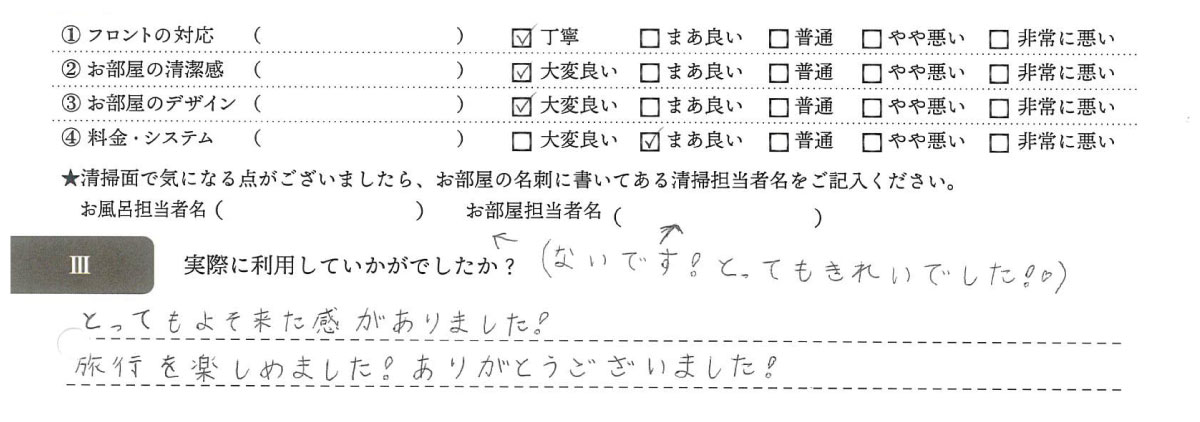 ① フロントの対応 ( ) ☑ 丁寧 ☐ まあ良い ☐ 普通 ☐ やや悪い ☐ 非常に悪い
② お部屋の清潔感 ( ) ☑ 大変良い ☐ まあ良い ☐ 普通 ☐ やや悪い ☐ 非常に悪い
③ お部屋のデザイン ( ) ☑ 大変良い ☐ まあ良い ☐ 普通 ☐ やや悪い ☐ 非常に悪い
④ 料金・システム ( ) ☐ 大変良い ☑ まあ良い ☐ 普通 ☐ やや悪い ☐ 非常に悪い
★清掃面で気になる点がございましたら、お部屋の名刺に書いてある清掃担当者名をご記入ください。
お風呂担当者名 ( ) お部屋担当者名 ( )
Ⅲ 実際に利用していかがでしたか? (ないです!とってもきれいでした!♡)
とってもよそ来た感がありました!
旅行を楽しめました!ありがとうございました!